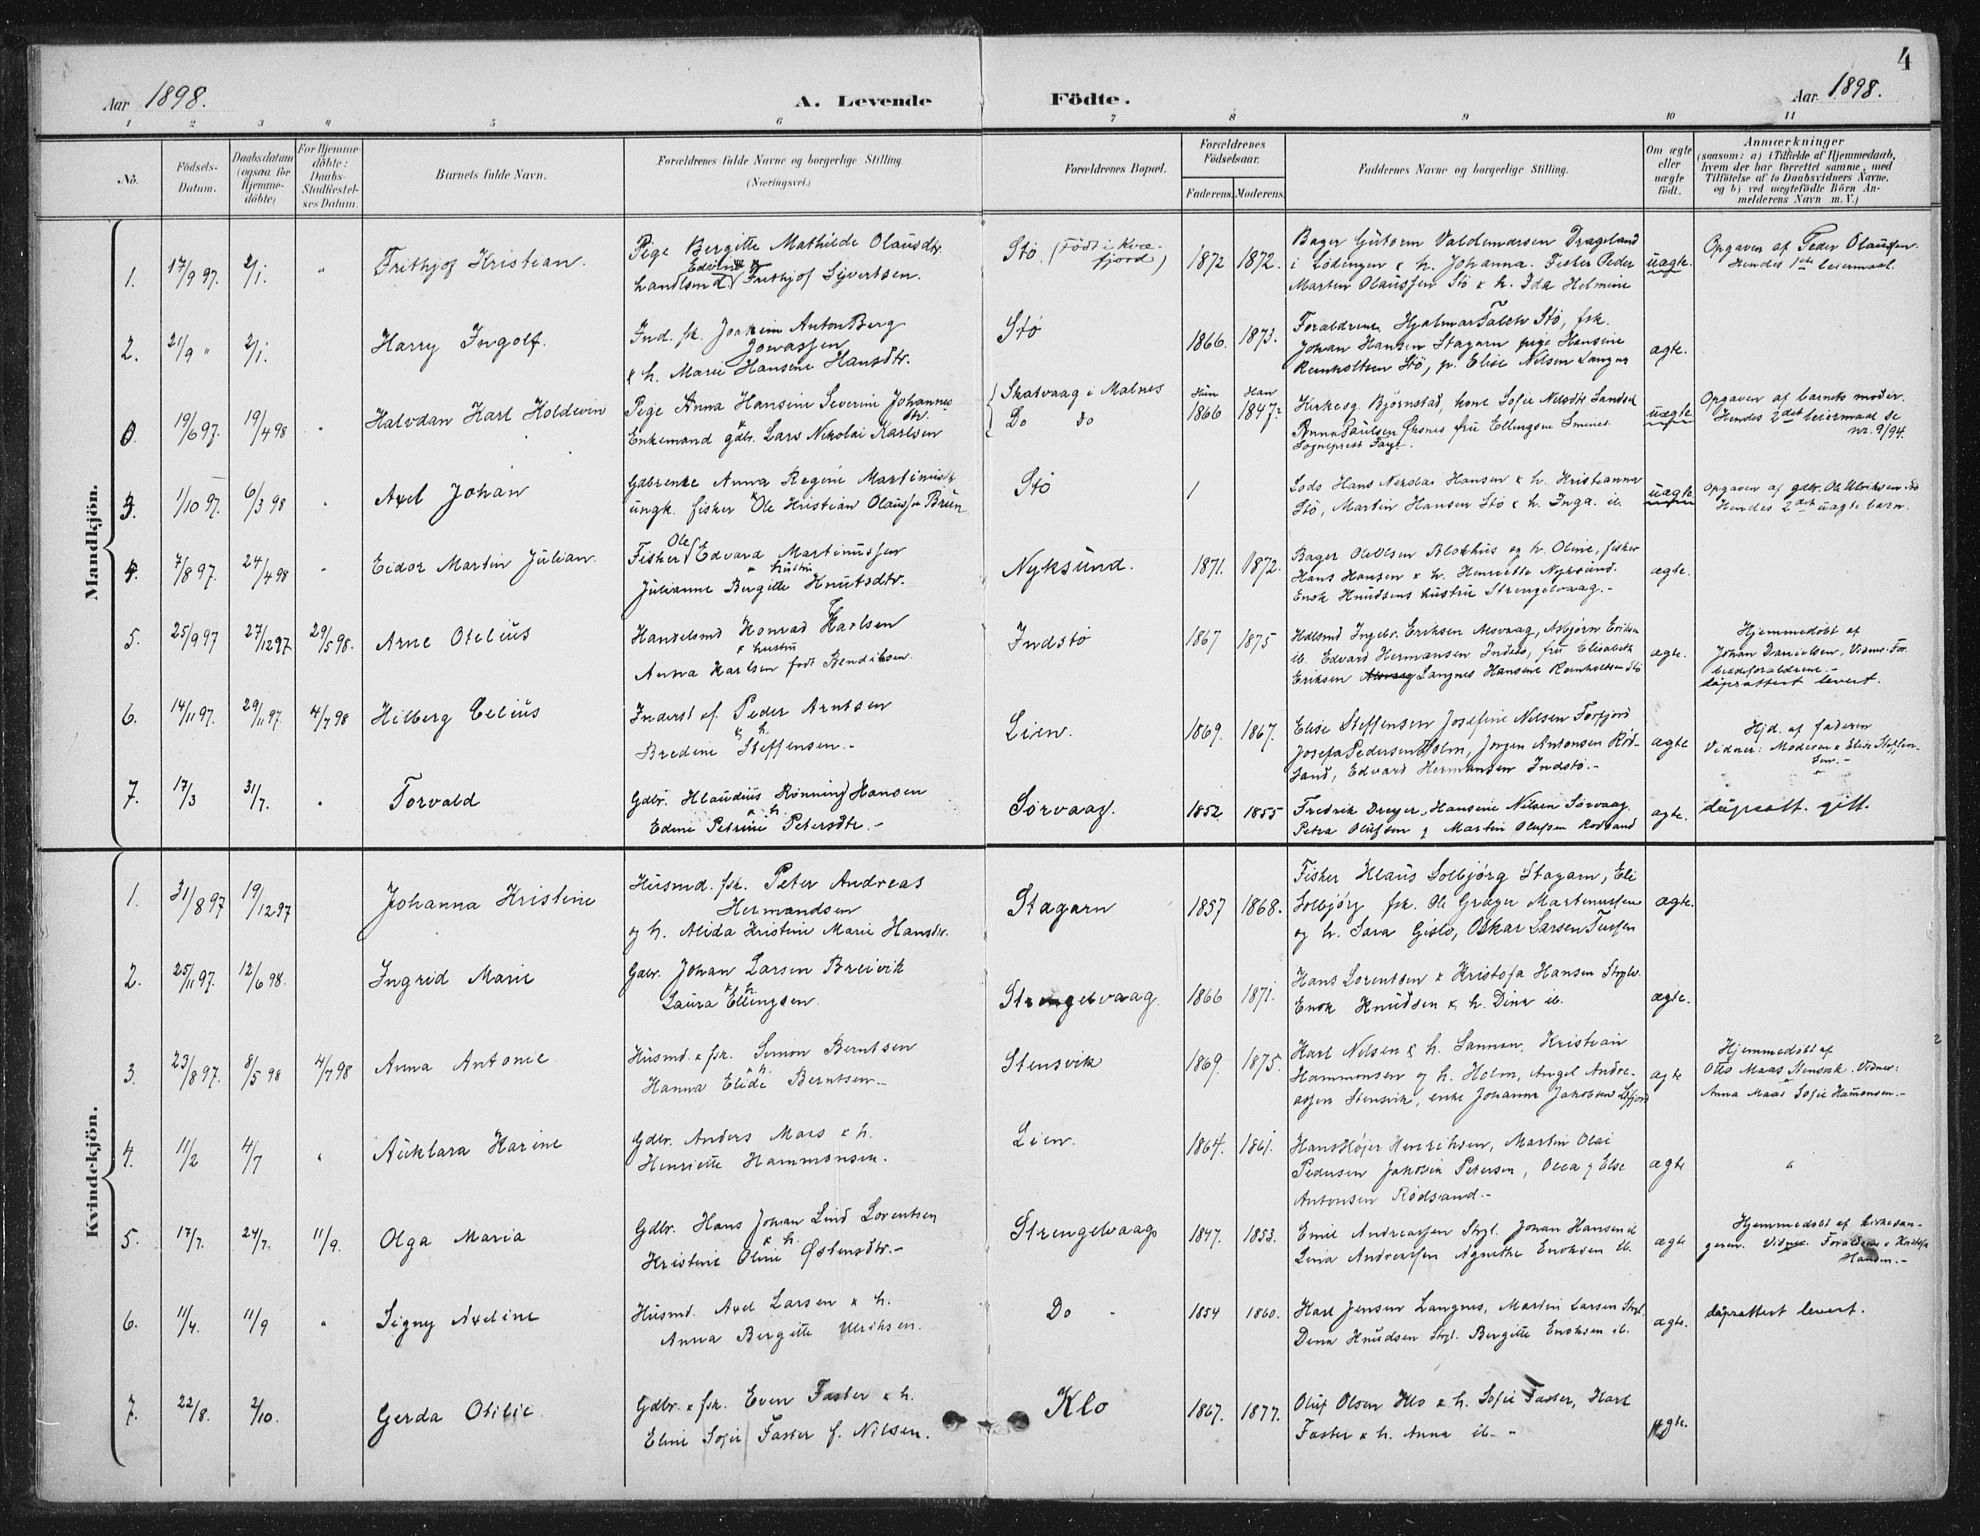 4
Aar 1898. A. Levende Födte. Aar 1898.
1 2 3 4 5 6 7 8 9 10 11
No. Födsels-Datum. Daabsdatum (ogsaa for Hjemme-döbte) For Hjemme-döbte: Daabs-Stadfæstel-ses Datum. Barnets fulde Navn. Forældrenes fulde Navne og borgerlige Stilling. (Næringsvei.) Forældrenes Bopæl. Forældrenes Födselsaar. Faderens. Moderens. Faddernes Navne og borgerlige Stilling. Om ægte eller uægte födt. Anmærkninger
(saasom: a) i Tilfælde af Hjemmedaab,
hvem der har forrettet samme, med
Tilföielse af to Daabsvidners Navne,
og b) ved uægtefödte Börn An-
melderens Navn m. V.)
Mandkjön.
1. 17/9 97. 2/1. " Frithjof Kristian.
Pige Bergitte Mathilde Olausdtr.
Landsmd. Edvin Frithjof Sjvertsen.
Stö. (Födt i Kvæ-
fjord)
1872 1872.
Bager Gutorm Valdemarsen Drageland
i Lödingen & h. Johanna. Fisker Peder
Martin Olaussen Stö & h. Ida Helmine
uægte.
Opgaven af Peder Olaussen.
Hendes 1ste leiermaal.
2. 21/9 " 2/1. Harry Ingolf.
Ind. fsk. Joakim Anton Berg
Jonassen
& h. Marie Hansine Hansdtr.
Stö
1866. 1873.
Forældrene, Hjalmar Falch Stö, fsk.
Johan Hansen Stagarn pige Hansine
Reinholtsen Stö, p. Elise Nilsen Langnes
ægte.
0. 19/6 97. 19/4 98 " Halvdan Karl Koldevin
Pige Anna Hansine Severine Johannes
dtr.
Enkemand gdbr. Lars Nikolai Karlsen
Skatvaag i Malnes
Do do
Hun 1866 Han 1847?
Kirkesg. Björnstad, kone Sofie Nilsdtr Sandset
Anna Paulsen Öksnes fru Ellingsen Smines.
Sogneprest
uægte
Opgaven af barnets moder.
Hendes 2det leiermaal se
nr. 9/94.
3. 1/10 97. 6/3 98 " Axel Johan
Gdbrenke Anna Regine Martinusdtr
ungk. fisker Ole Kristian Olaussen Brun
Stö
/
Lods Hans Nikolai Hansen & h. Kristianna
Stö, Martin Hansen Stö & h. Inga. ib.
uægte
Opgaven af gdbr. Ole Ulriksen Stö
Hendes 2det uægte barn.
4. 7/8 97. 24/4 98 " Eidor Martin Julian.
Fisker Ole Edvard Martinussen
& hustru
Julianne Bergitte Knutsdtr.
Nyksund.
1871. 1872.
Bager Ole Olsen Blokhus og h. Oline, fisker
Hans Hansen & h. Henriette Nyksund.
Enok Knudsens hustru Strengelvaag.-
ægte.
5. 25/9 97 27/12 97 29/5 98. Arne Otelius
Handelsmd Konrad Karlsen
& hustru
Anna Karlsen född Bendiksen.
Indstö
1867 1875
Hdlsmd Ingebr. Eriksen Alsvaag, Asbjörn Eriksen
ib. Edvard Hermansen Indstö, fru Elisabeth
Eriksen Alsvaag Langnes Hansine Reinholtsen Stö
ægte.
Hjemmedöbt af
Johan Danielsen, Vidner: For.
bedreforældrene.-
dåpsattest levert.
6. 14/11 97. 29/11 97. 4/7 98 Hilberg Celius
Inderst ef. Peder Arntsen
& h.
Bredine Steffensen.-
Lien.
1869. 1867.
Elise Steffensen Josefine Nilsen Forfjord
Josefa Pedersen Holm, Jörgen Antonsen Röd-
sand, Edvard Hermansen Indstö.-
ægte
Hjd. af faderen
Vidner: Moderen & Elise Steffen-
sen.-
7. 17/3 31/7. " Torvald
Gdbr. Klaudius Rönning Hansen
& h.
Edine Petrine Petersdtr.-
Sörvaag.
1852 1855
Fredrik Dreyer, Hansine Nilsen Sörvaag.
Petra Olufsen & Martin Olufsen Rödsand
ægte.
dåpsatt. gitt.
Kvindekjön.
1. 31/8 97 19/12 97 Johanna Kristine
Husmd. fsk. Peter Andreas
Hermandsen
og h. Alida Kristine Marie Hansdtr.
Stagarn
1857 1868.
Fisker Klaus Solbjörg Stagarn, Eli
Solbjörg fsk. Ole Gräger Martinussen
og h. Sara Gislö, Oskar Larsen
ægte.
2. 25/11 97. 12/6 98. Ingrid Marie
Gdbr. Johan Larsen Breivik
& h.
Laura Ellingsen.
Strengelvaag.
1866 1871.
Hans Lorentsen & Kristofa Hansen Strglv.
Enok Knudsen & h. Dina ib.
ægte.
3. 23/8 97. 8/5 98 4/7 98 Anna Antonie
Husmd. & fsk. Simon Berntsen
& h.
Hanna Elide Berntsen-
Stensvik
1869. 1875.
Karl Nilsen & h. Sannan, Kristian
Hammonsen og h. Holm, Angel Andre-
assen Stensvik, enke Johanna Jakobsen
ægte
Hjemmedöbt af
Otto Maas Stensvik. Vidner:
Anna Maas & Sofie Hamonsen.-
4. 11/2 4/7 " Auklara Karine
Gdbr. Anders Maas & h.
Henriette Hammonsen.
Lien.
1864. 1861.
Hans Höjer Henriksen, Martin Olai
Pedersen Jakobin Petersen, Olea & Else
Antonsen Rödsand.-
ægte
"
5. 17/7. 24/7. 11/9. Olga Maria
Gdbr. Hans Johan Lind Lorentsen
& h.
Kristine Oline Östensdtr.-
Strengelvaag
1847. 1853.
Emil Andreassen Strgl. Johan Hansen &
Lina Andreassen Agnethe Enoksen ib.
ægte
Hjemmedöbt af kirkesan-
geren. Vidner. Forældrene & Kristofa
Hansen.-
6. 11/4. 11/9 " Signy Axeline
Husmd. Axel Larsen & h.
Anna Bergitte Ulriksen.
Do -
1854 1860.
Karl Jensen Langnes, Martin Larsen Strgl.
Dina Knudsen Strgl. Bergitte Enoksen ib.
ægte.
dåpsattest levert.
7. 22/8. 2/10. Gerda Otilie.
Gdbr. & fsk. Even Faster & h.
Eline Sofie Faster f. Nilsen.
Klo
1867. 1877.
Oluf Olsen Klo & h. Sofie Faster, Karl
Faster & h. Anna ib. "
ægte.